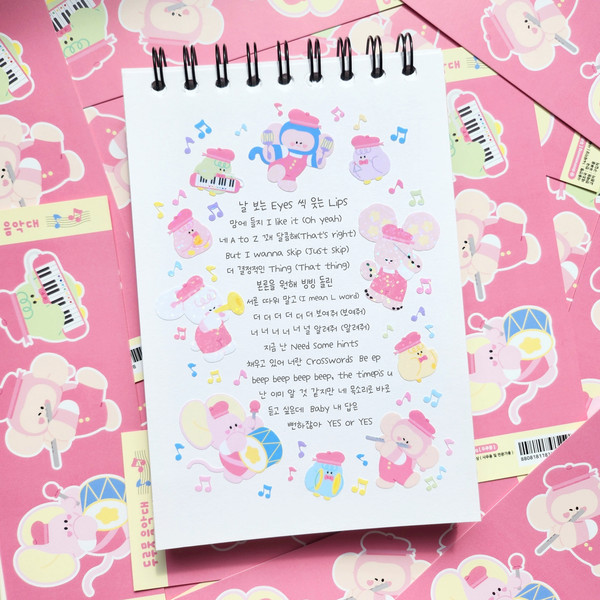 날 보는 Eyes 씩 웃는 Lips
맘에 들지 I like it (Oh yeah)
네 A to Z 꽤 달콤해(That's right)
But I wanna skip (Just skip)
더 결정적인 Thing (That thing)
본론을 원해 빙빙 돌린
서론 따위 말고 (I mean L word)
더 더 더 더 더 더 보여줘 (보여줘)
너 너 너 너 너 널 알려줘 (알려줘)
지금 난 Need some hints
채우고 있어 너란 Crosswords Be ep
beep beep beep beep, the time's u
난 이미 알 것 같지만 네 목소리로 바로
듣고 싶은데 Baby 내 답은
뻔하잖아 YES or YES
음악대
음악대